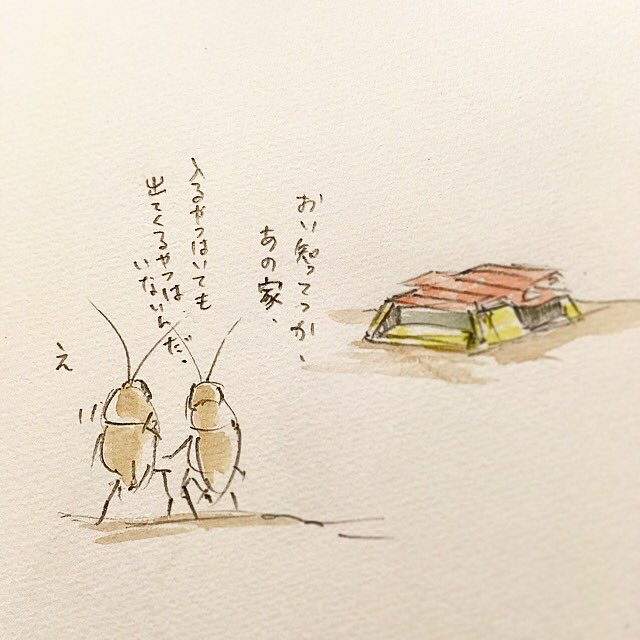 おい知ってっか、
あの家、
入るやつはいても
出てくるやつは
いないんだ。
え